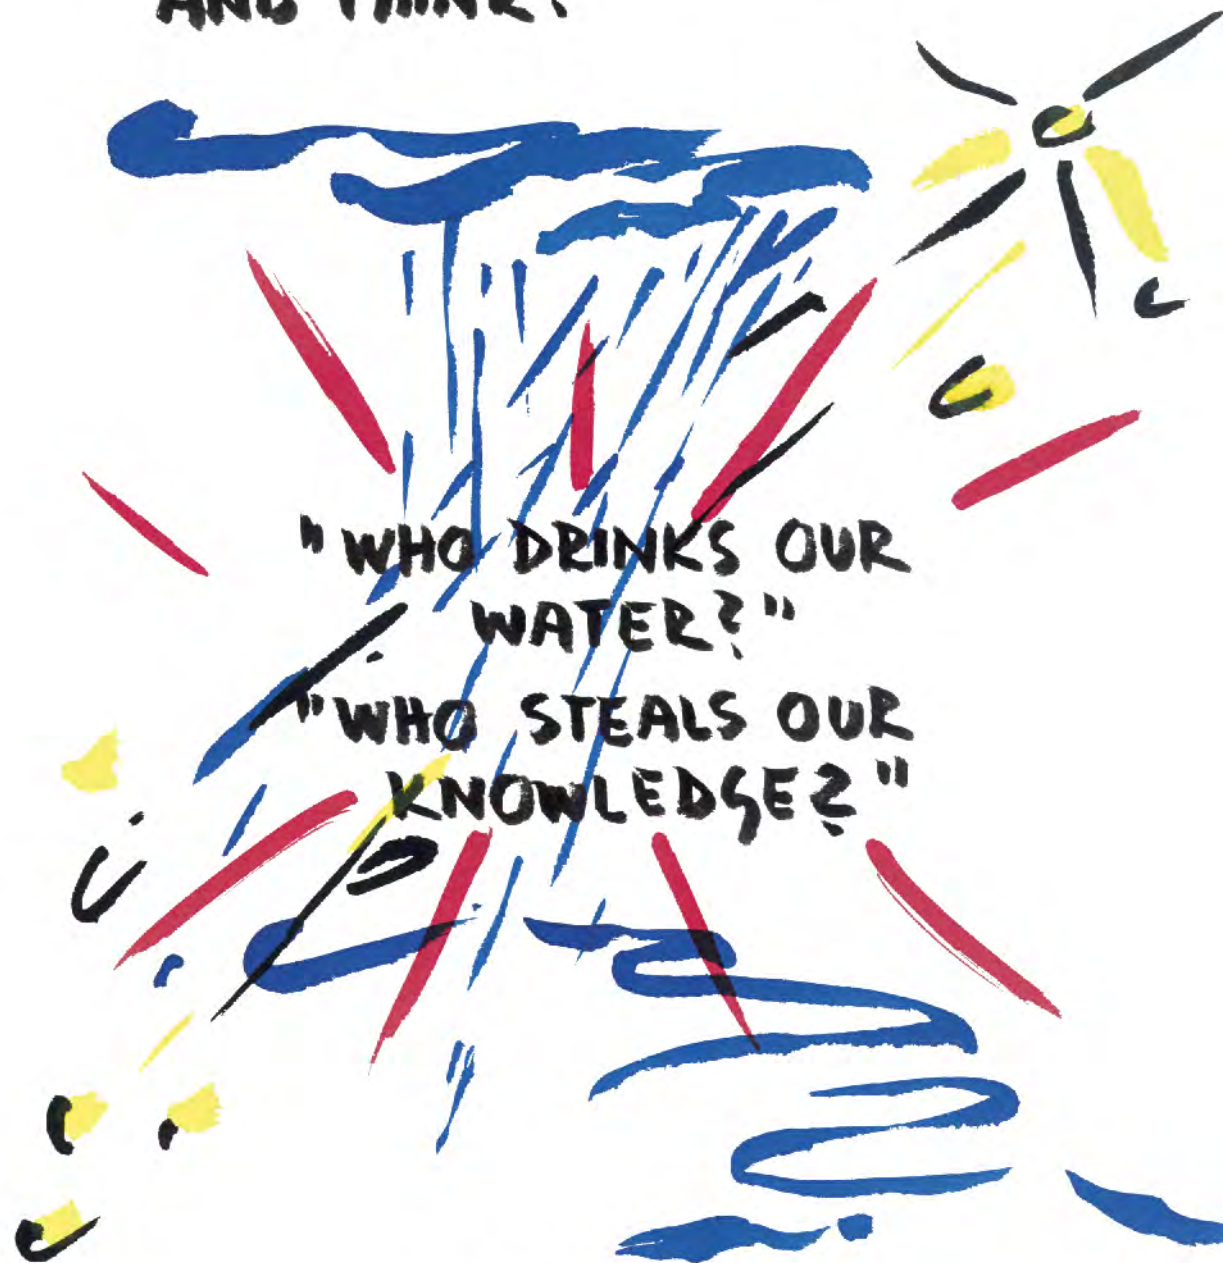 AND THINK?
"WHO DRINKS OUR
WATER?"
"WHO STEALS OUR
KNOWLEDGE?"